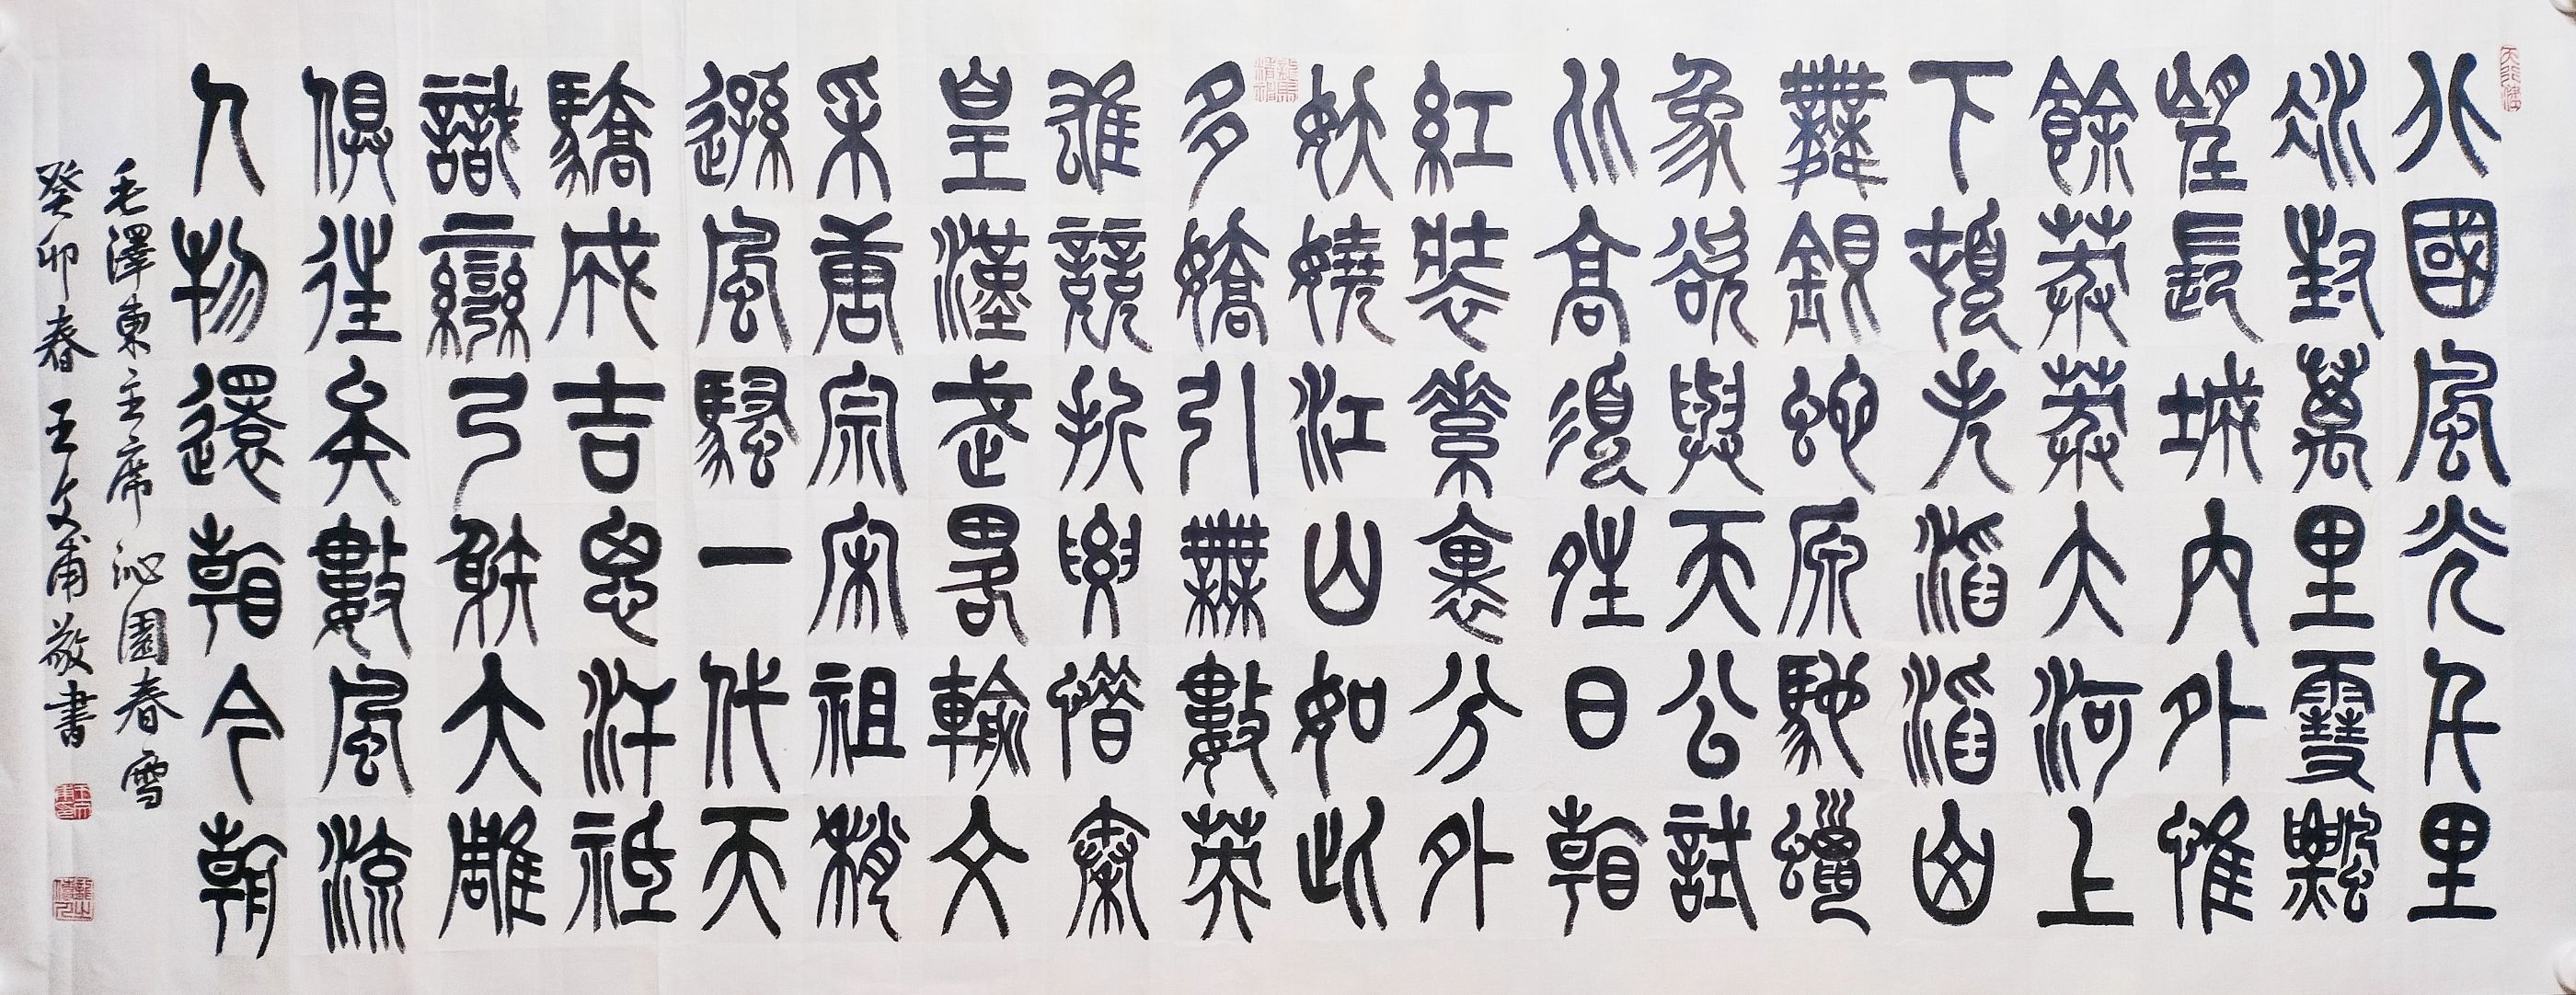 北國風光千里
冰封萬里雪飄
望長城內外惟
餘莽莽大河上
下頓失滔滔山
舞銀蛇原馳蠟
象欲與天公試
比高須晴日看
紅裝素裹分外
妖嬈江山如此
多嬌引無數英
雄競折腰惜秦
皇漢武略輸文
采唐宗宋祖稍
遜風騷一代天
驕成吉思汗祗
識彎弓射大雕
俱往矣數風流
人物還看今朝
毛澤東主席沁園春雪
癸卯春王文甫敬書